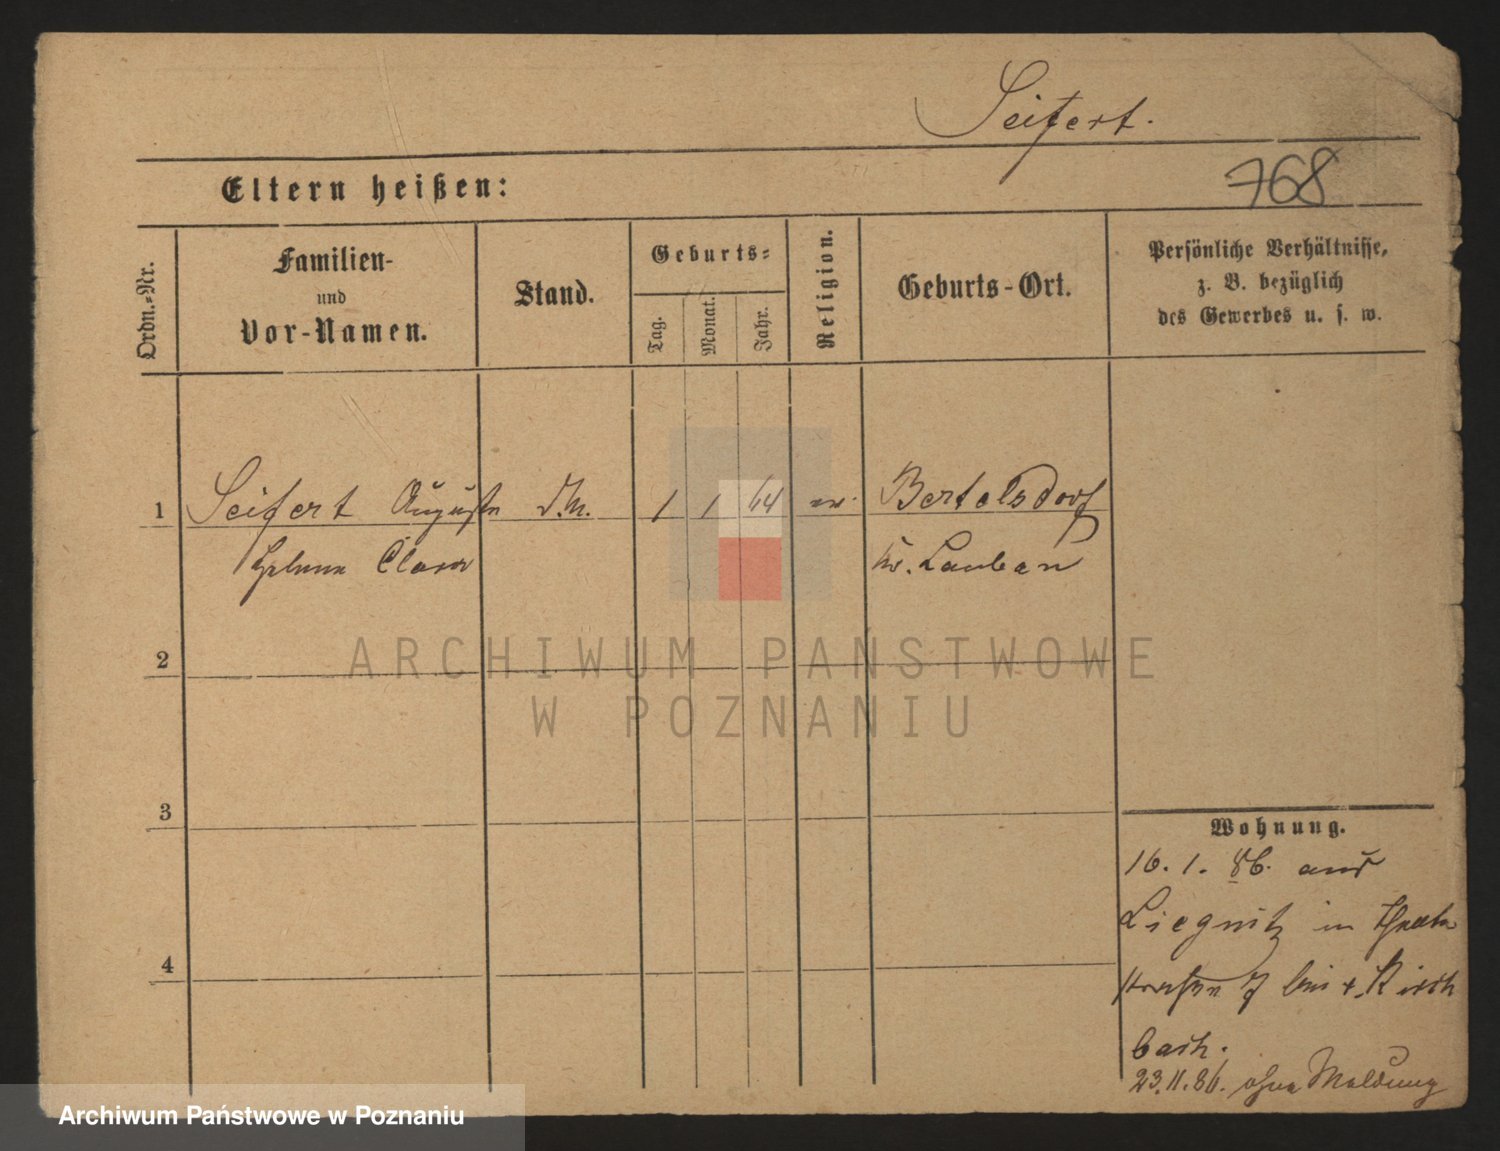 Seifert.
768
Eltern heißen:
Ordn.-Nr.
Familien-
und
Vor-Namen.
Stand.
Geburts-
Tag.
Monat.
Jahr.
Religion.
Geburts-Ort.
Persönliche Verhältnisse,
z. B. bezüglich
des Gewerbes u. s. w.
1 Seifert Auguste D.M. 1 1 64 ev. Bertelsdorf
Helene Clara Kr. Lauban
2
ARCHIWUM PAŃSTWOWE
W POZNANIU
3
Wohnung.
16. 1. 86. aus
Liegnitz in
4
straße 7 bei v. Kirch
bach.
23.11.86. ohne Meldung
Archiwum Państwowe w Poznaniu